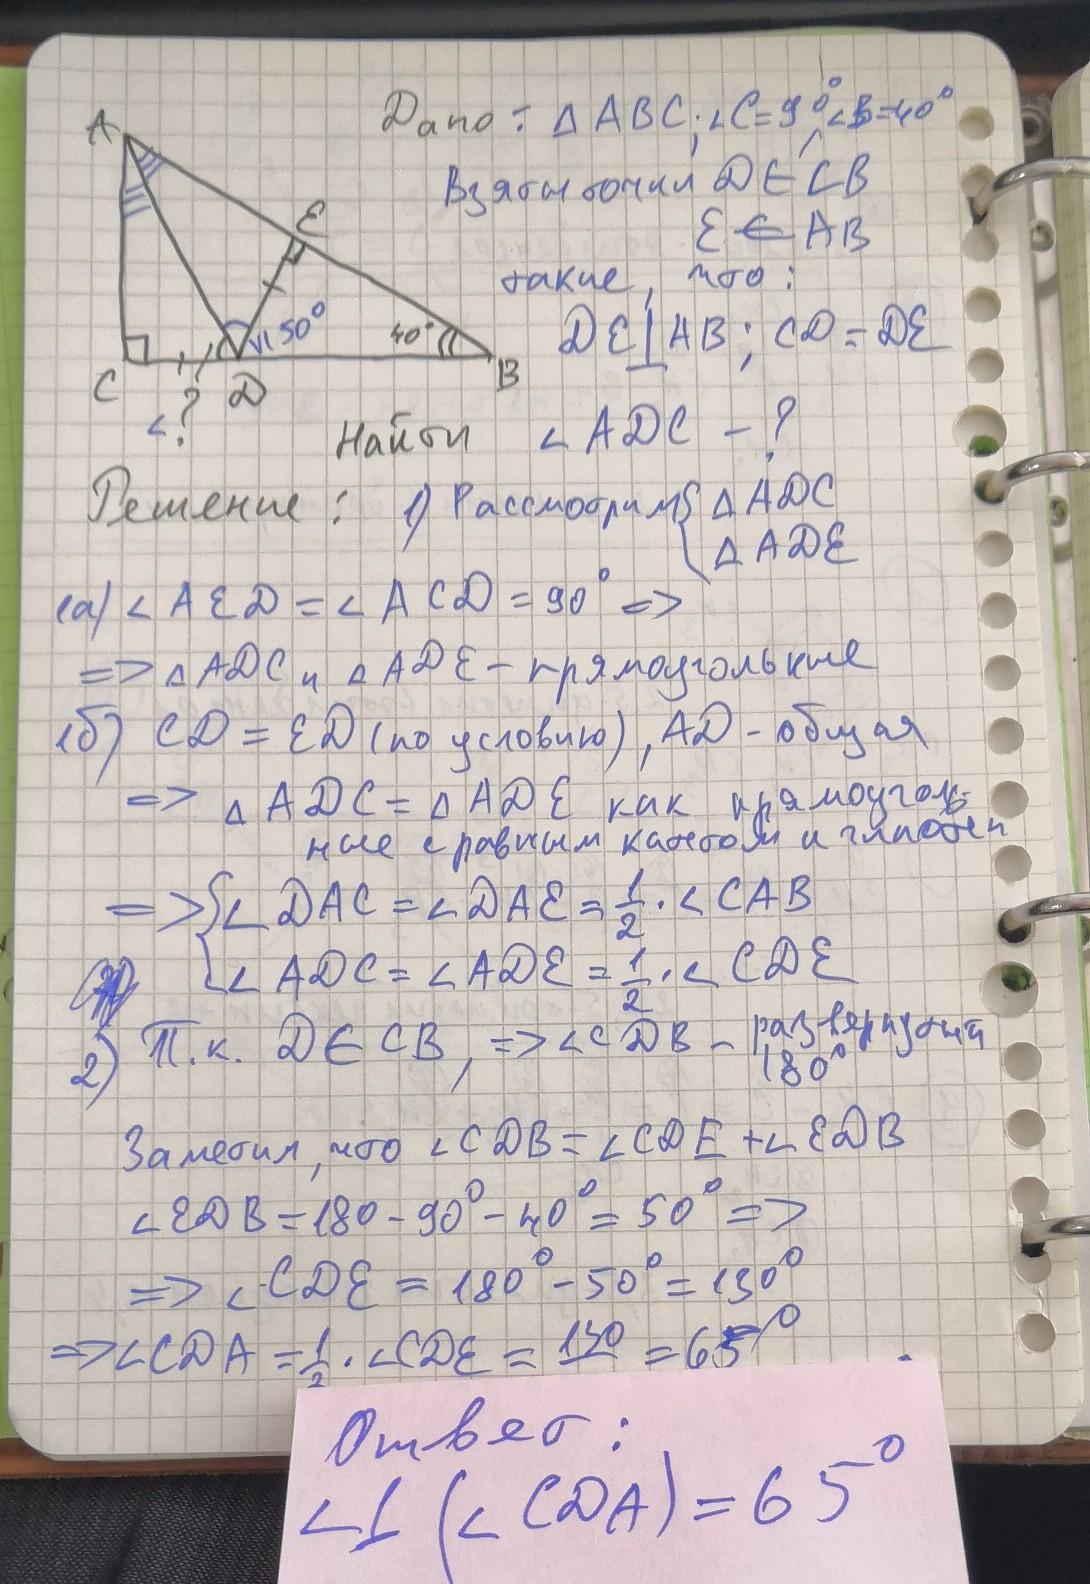 Дано: △ABC; ∠C=90°, ∠B=40°
Взяты точки D∈CB
E∈AB
такие, что:
DE⊥AB; CD=DE
A
E
50°
40°
C
D
B
∠?
Найти ∠ADC - ?
Решение: 1) Рассмотрим { △ADC
△ADE
1а) ∠AED = ∠ACD = 90° =>
=> △ADC и △ADE - прямоугольные
1б) CD = ED (по условию), AD - общая
=> △ADC = △ADE как прямоуголь-
ные с равным катетом и гипотен
=> { ∠DAC = ∠DAE = 1/2 · ∠CAB
∠ADC = ∠ADE = 1/2 · ∠CDE
2) Т.к. D∈CB, => ∠CDB - развернутый
180°
Заметим, что ∠CDB = ∠CDE + ∠EDB
∠EDB = 180 - 90° - 40° = 50° =>
=> ∠CDE = 180° - 50° = 130°
=> ∠CDA = 1/2 · ∠CDE = 130 = 65°
Ответ:
∠1 (∠CDA) = 65°